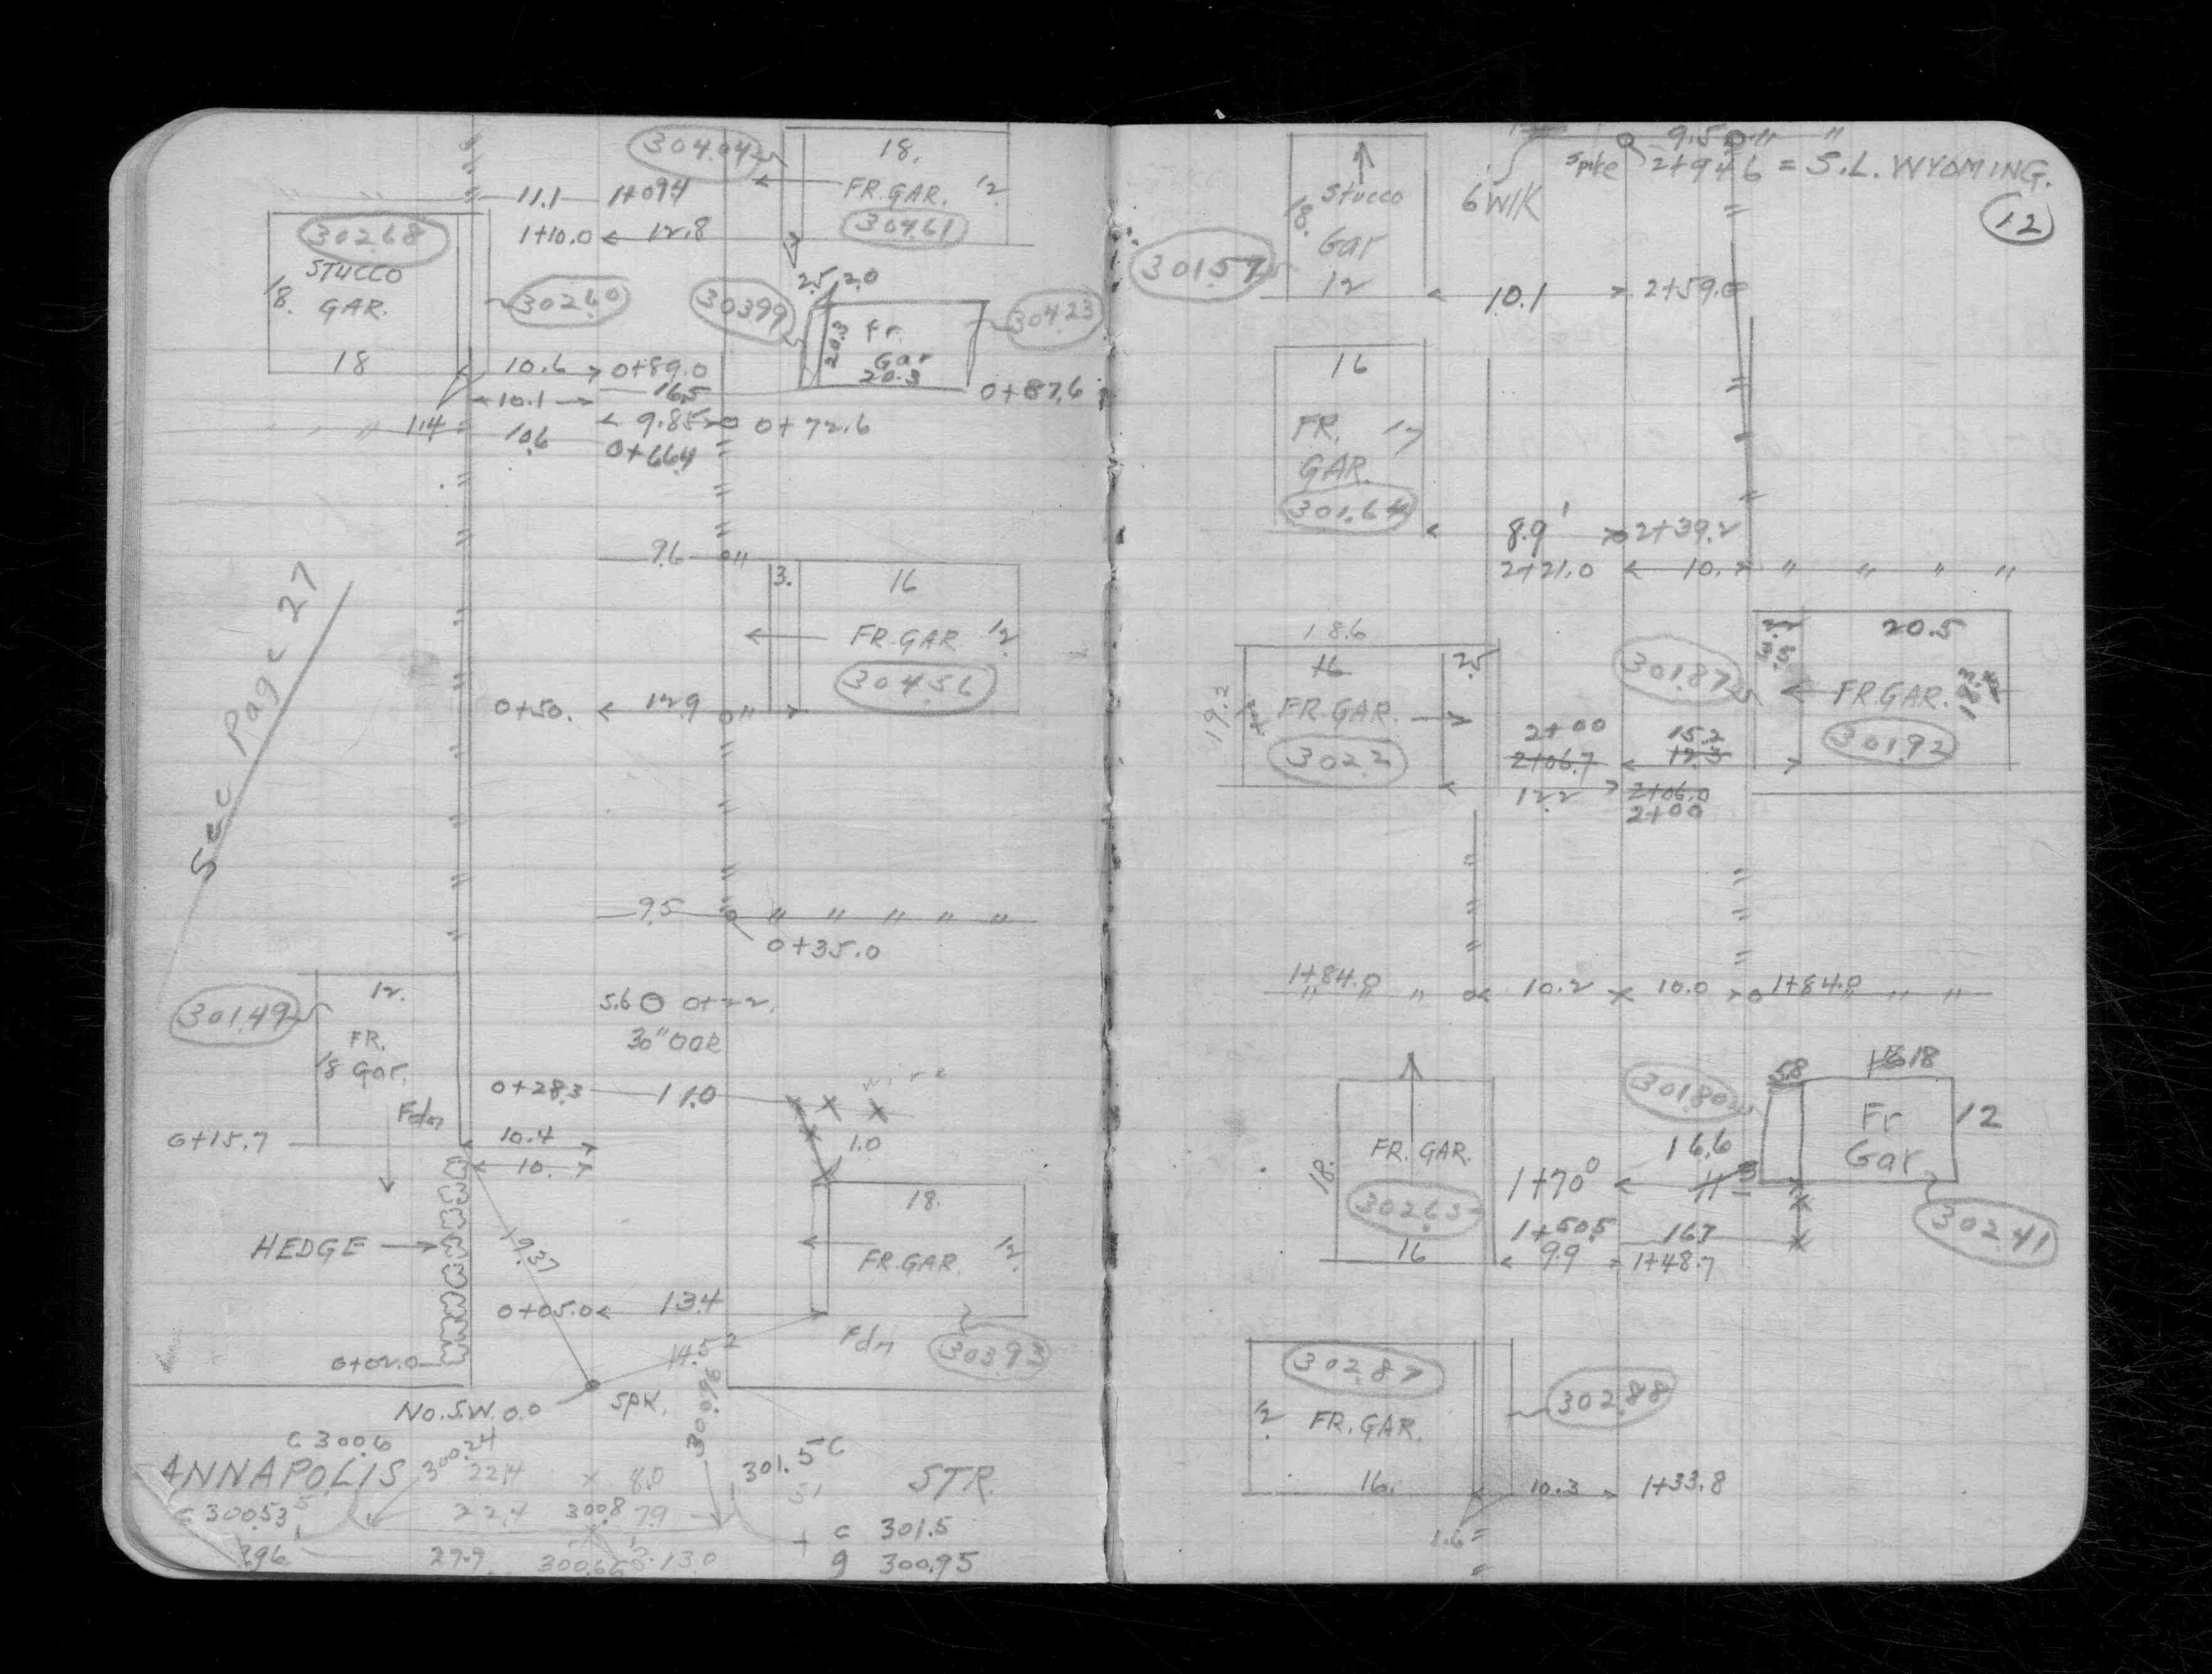 304.04
18.
FR. GAR. 12
304.61
11.1 1+09.4
1+10.0 12.8
302.68
STUCCO
18. GAR.
18
302.60
303.99
2.5 2.0
20.3
Fr.
Gar
20.3
304.23
10.6 0+89.0
16.5
0+87.6
10.1
9.85 0+72.6
1.4
10.6
0+66.4
9.6
3.
16
FR. GAR 12.
304.56
0+50. 12.9
See Page 27
9.5
0+35.0
301.49
12.
FR.
18 Gar.
Fdn
5.6 0+22.
30" OAK
wire
0+28.3 11.0
1.0
0+15.7
10.4
10.
HEDGE
19.37
18.
FR. GAR. 12.
0+05.0 13.4
Fdn
303.93
14.52
0+02.0
No. S.W. 0.0
SPK.
300.96
C 300.6
ANNAPOLIS
300.24
22.4 x 8.0
301.5 C
STR.
C 300.53
22.4 300.8 7.9
C 301.5
.96
29.9 300.66 13.0
g 300.95
9.5
Spike 2+94.6 = S.L. WYOMING.
12
6 W/K
Stucco
18.
Gar
12
301.57
10.1 2+59.0
16
FR. 17
GAR.
301.64
8.9' 2+39.2
2+21.0 10.
18.6
16
2.5
19.2
FR. GAR.
302.2
301.87
20.5
FR. GAR.
301.92
2+00 15.2
2+06.7 12.3
12.2 2+06.0
2+00
1+84.0 10.2 10.0 1+84.0
301.80
5.8
18
Fr
Gar
12
302.41
FR. GAR.
18.
302.65
16
16.6
1+70.0 11.3
1+50.5 16.7
9.9 1+48.7
302.87
12.
FR. GAR.
16.
302.88
10.3 1+33.8
1.6